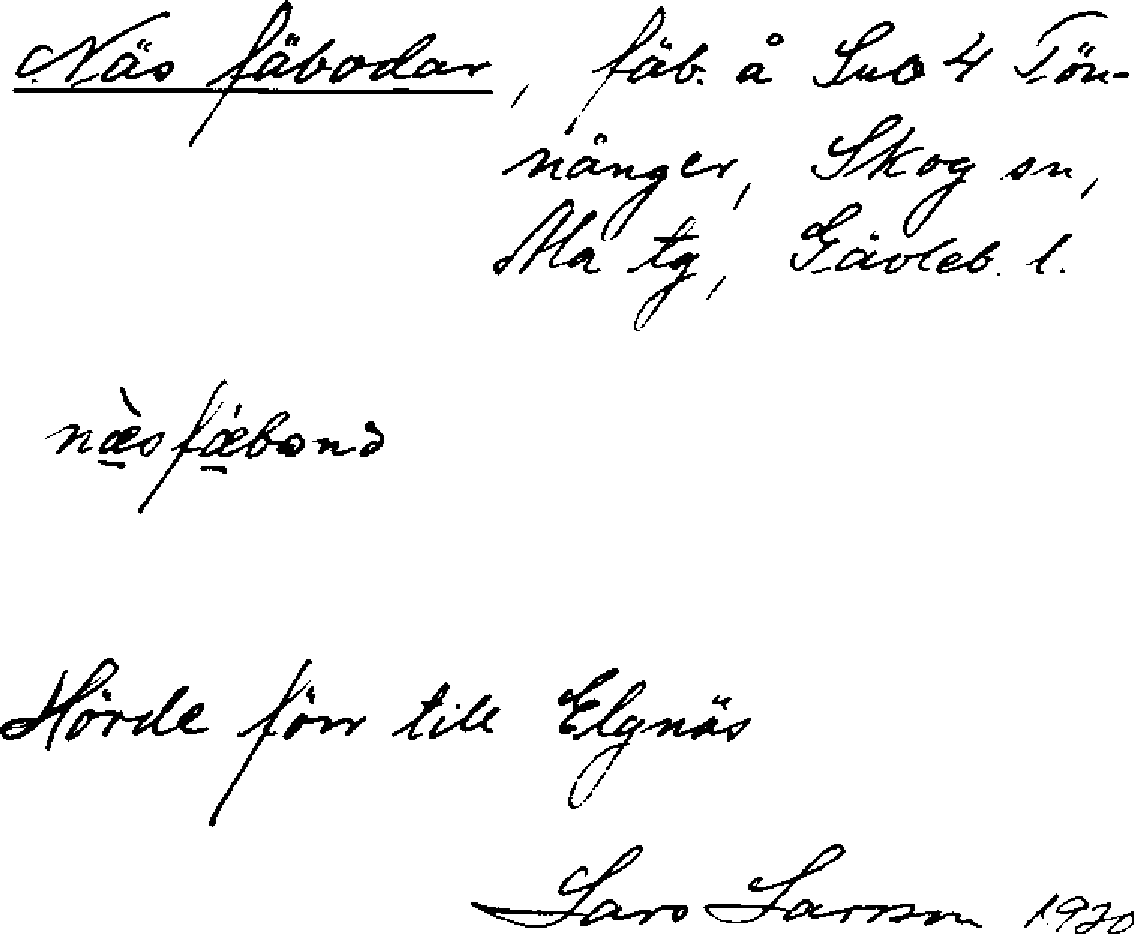 Näs fäbodar, fäb. å SvO 4 Tön-
nånger, Skog sn,
Ala tg, Gävleb. l.
næ̀sfæ̀bɷnə
Hörde förr till Elgnäs
Lars Larsson 1920